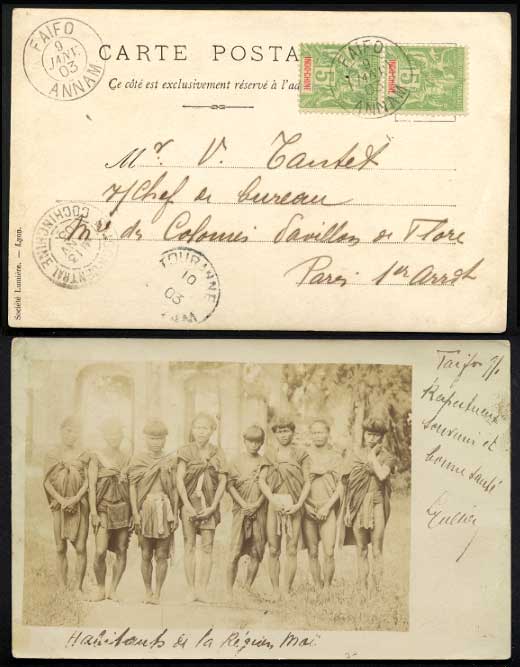 FAIFO
9
JANV.
03
ANNAM
CARTE POSTA
Ce côté est exclusivement réservé à l'ad
5
INDO-CHINE
5
INDO-CHINE
FAIFO
9
03
ANNAM
Mr V. Tautet
s/Chef de bureau
Mre des Colonies Pavillon de Flore
Paris 1er Arrdt
CENTRAL
COCHINCHINE
TOURANNE
10
03
Société Lumière. — Lyon.
Faifo 9/1
souvenir et
bonne santé
Habitants de la Région Moï